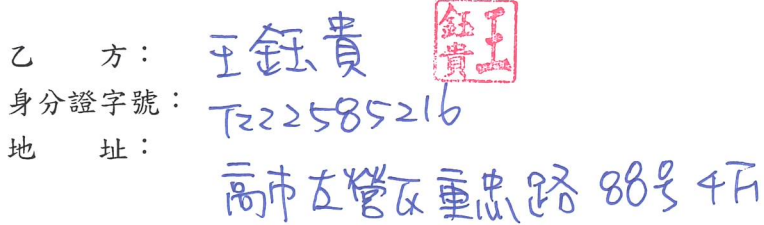 乙方：王鈺貴 王鈺貴
身分證字號：T222585216
地址：
高市左營区重忠路 88号4F